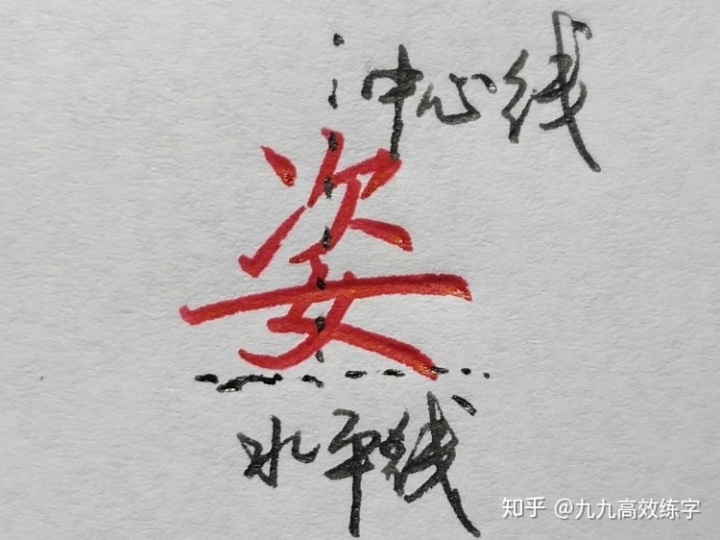 中心线
姿
水平线
知乎 @九九高效练字